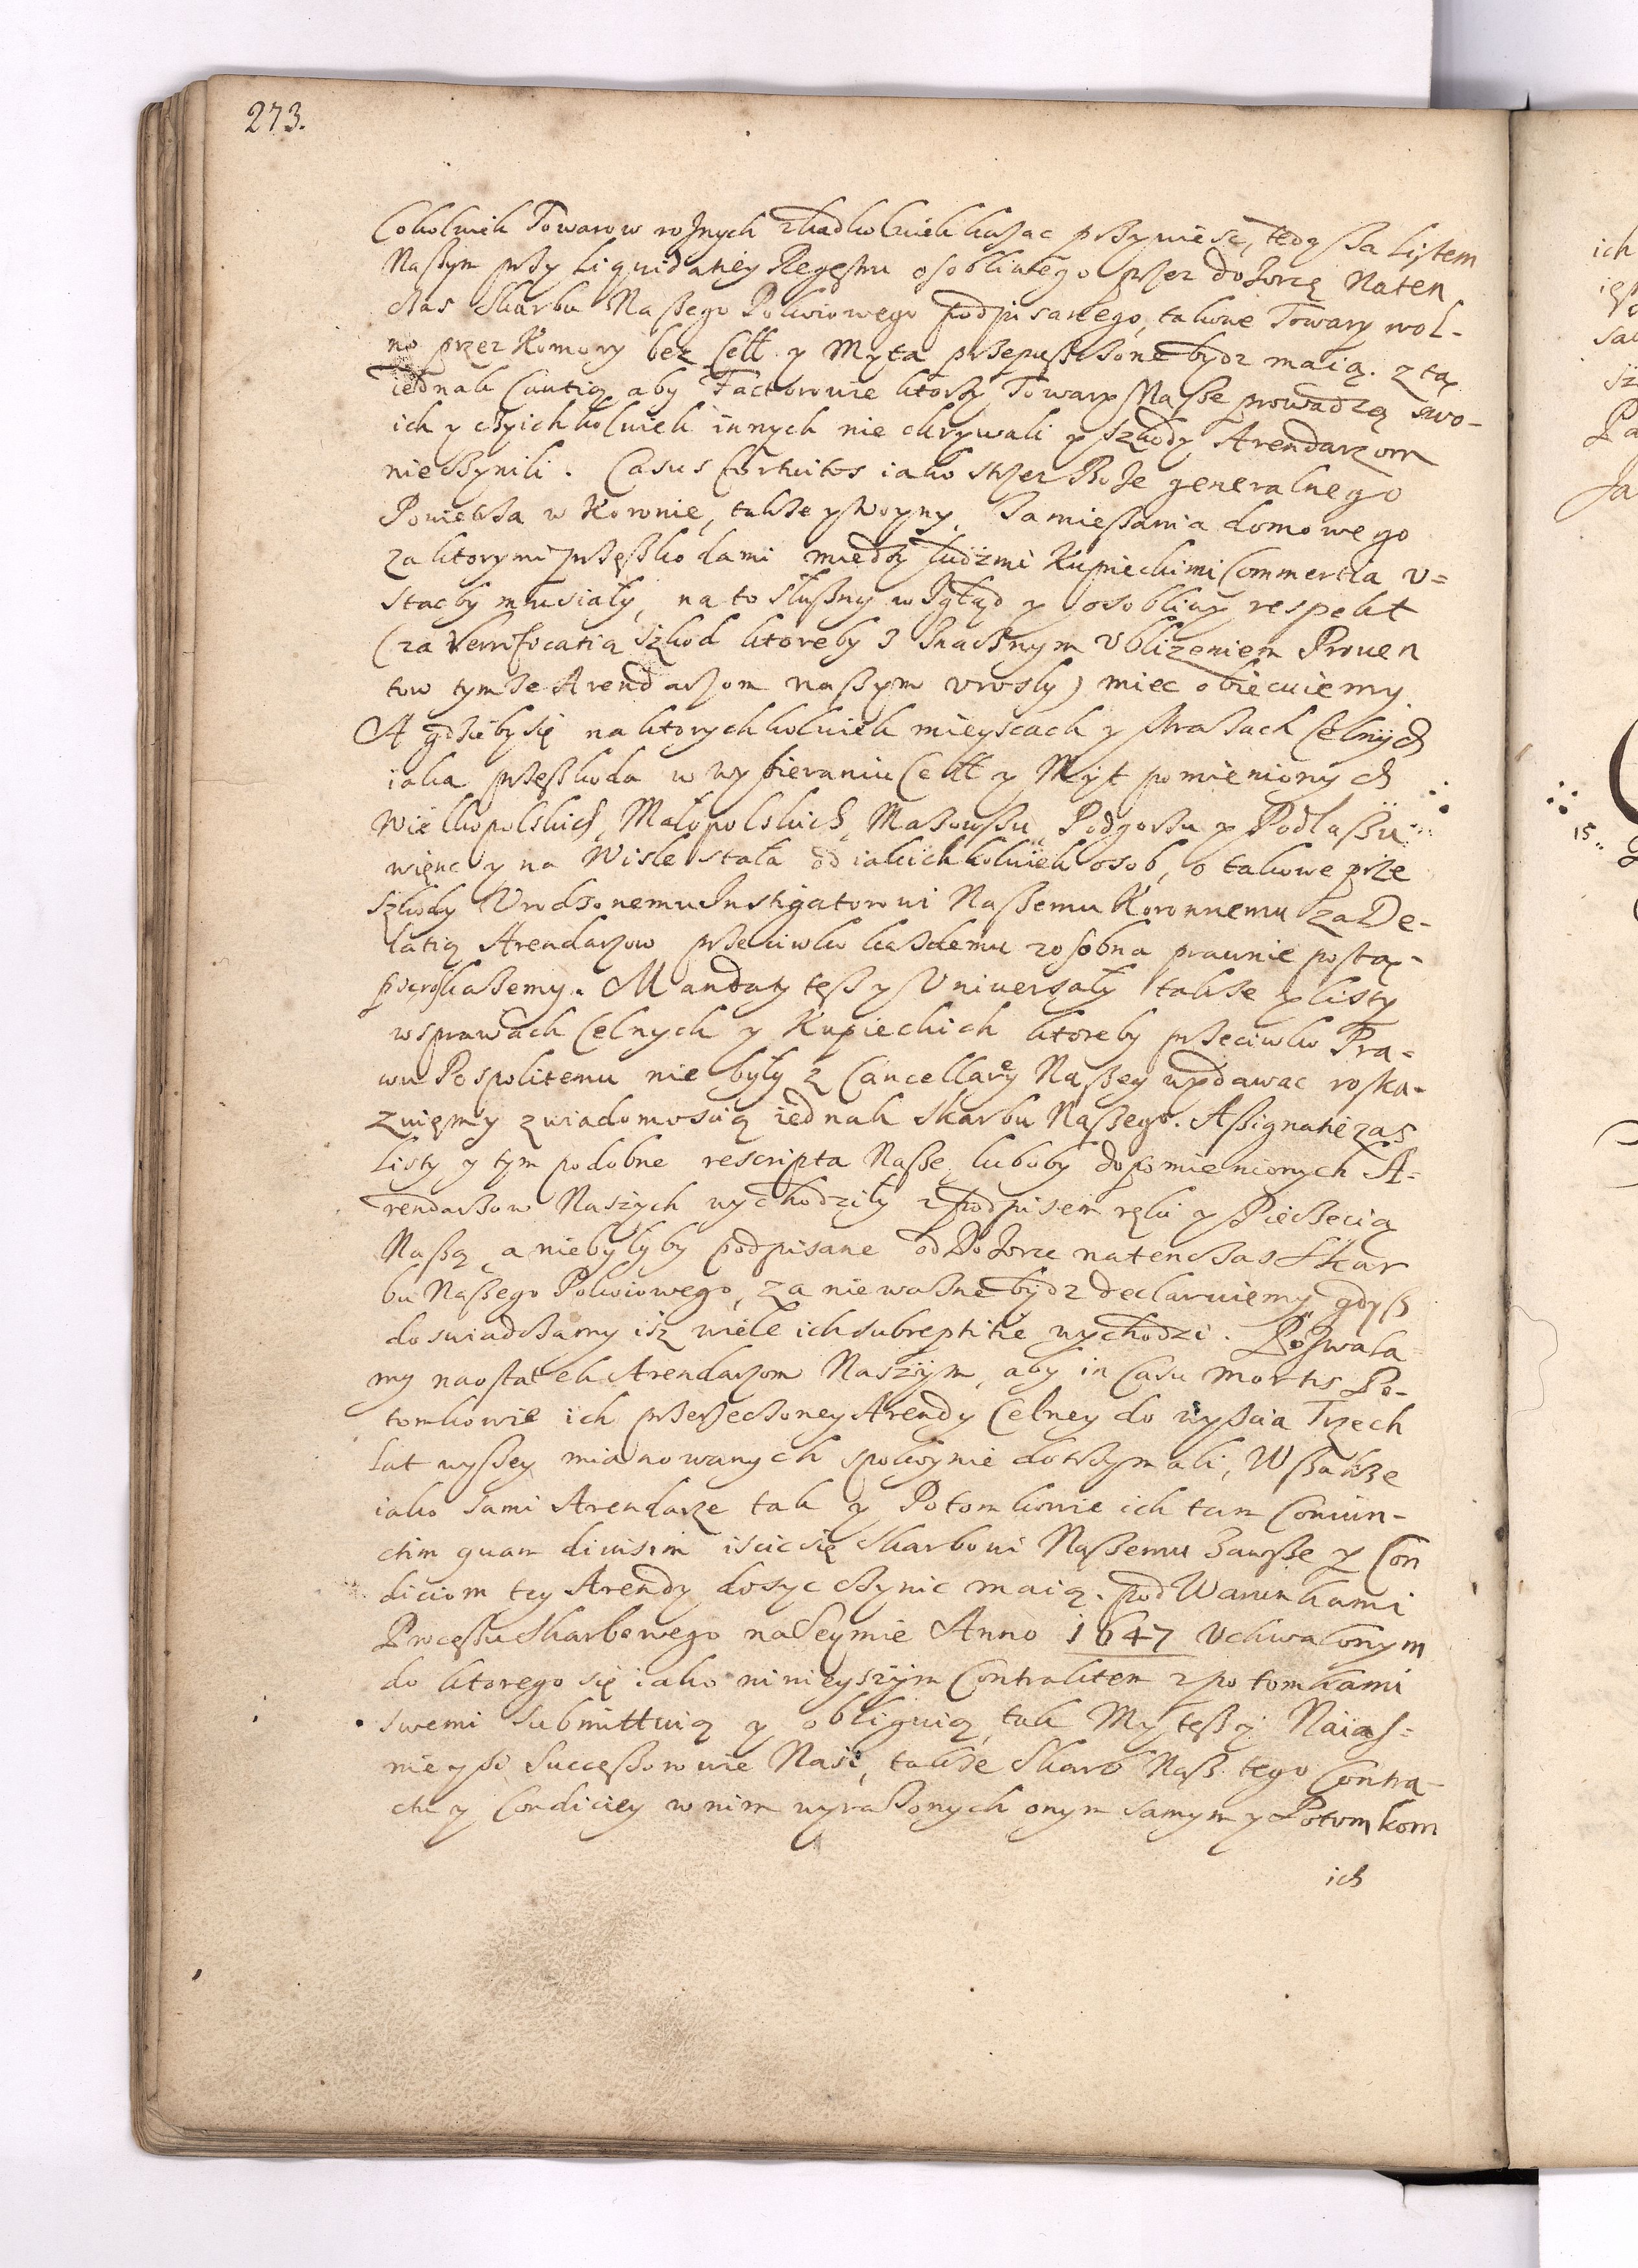 273.
Cokolwiek Towarow rożnych zkądkolwiek każąc przynieść, tedy za listem
Naszym przy Liquidatiey Regestru osobliwego przez dozorcę Naten
czas Skarbu Naszego Pokoiowego podpisanego, takowe Towary wol-
no przez Komory bez Cełł y Myta przepuszczone bydz maią. z tą
iednak Cautią aby Factorowie ktorzy Towary Nasze prowadzą swo-
ich y czyichkolwiek innych nie chrywali y szkody Arendarzom
nie czynili. Casus fortuitos iako strzeż Boże generalnego
Powietrza w Koronie, także y Woyny, Zamieszania domowego
za ktorymi przeszkodami między ludźmi Kupieckimi Commertia v=
stacby musiały, na to słuszny wzgląd y osobliwy respekt
(za Verificatią szkod ktoreby z znacznym Vbliżeniem Proven
tow tymże Arendarzom naszym vrosły) miec obiecuiemy.
A gdzieby się na ktorychkolwiek mieyscach y strażach Celnych
iaka przeszkoda w wybieraniu Cełł y Myt pomienionych
Wielkopolskich, Małopolskich, Mazowszu, Podgorzu y Podlaszu
więnc y na Wisle stała od iakichkolwiek osob, o takowe prze
szkody Vrodzonemu Instigatorowi Naszemu Koronnemu za De-
latią Arendarzow przeciwko każdemu zosobna prawnie postą-
pić roskażemy. Mandaty tesz y Vniversały także y listy
w sprawach Celnych y Kupieckich ktoreby przeciwko Pra-
wu Pospolitemu nie były z Cancellarÿ Naszey wydawac roska-
zuięmy z wiadomoscią iednak Skarbu Naszego. Assignatie zas
Listy y tym podobne rescripta Nasze luboby do pomienionych A-
rendarzow Naszych wychodziły z podpisem ręki y Pieczęcią
Naszą, a niebyłyby podpisane od Dozorce natenczas Skar
bu Naszego Pokoiowego, za nieważne bydz declaruiemy, gdysz
doswiadczamy isz wiele ich subreptitie wychodzi. Pozwala-
my naostatek Arendarzom Naszym, aby in Casu mortis Po-
tomkowie ich przerzeczoney Arendy Celney do wyścia Trzech
lat wyszey mianowanych spokoynie dotrzymali, Wszakże
iako sami Arendarze tak y Potomkowie ich tam Coniun-
ctim quam divisim iscic się Skarbowi Naszemu Zawsze y Con
diciom tey Arendy dosyc czynic maią. pod Warunkami
Processu Skarbowego na Seymie Anno 1647 Vchwalonym
do ktorego się iako ninieyszym Contraktem z potomkami
swemi submittuią y obliguią, tak My tesz y Naias-
nieyszi Successorowie Nasi, także Skarb Nasz tego Contra-
ctu y Condiciey w nim wyrażonych onym samym y Potomkom
ich